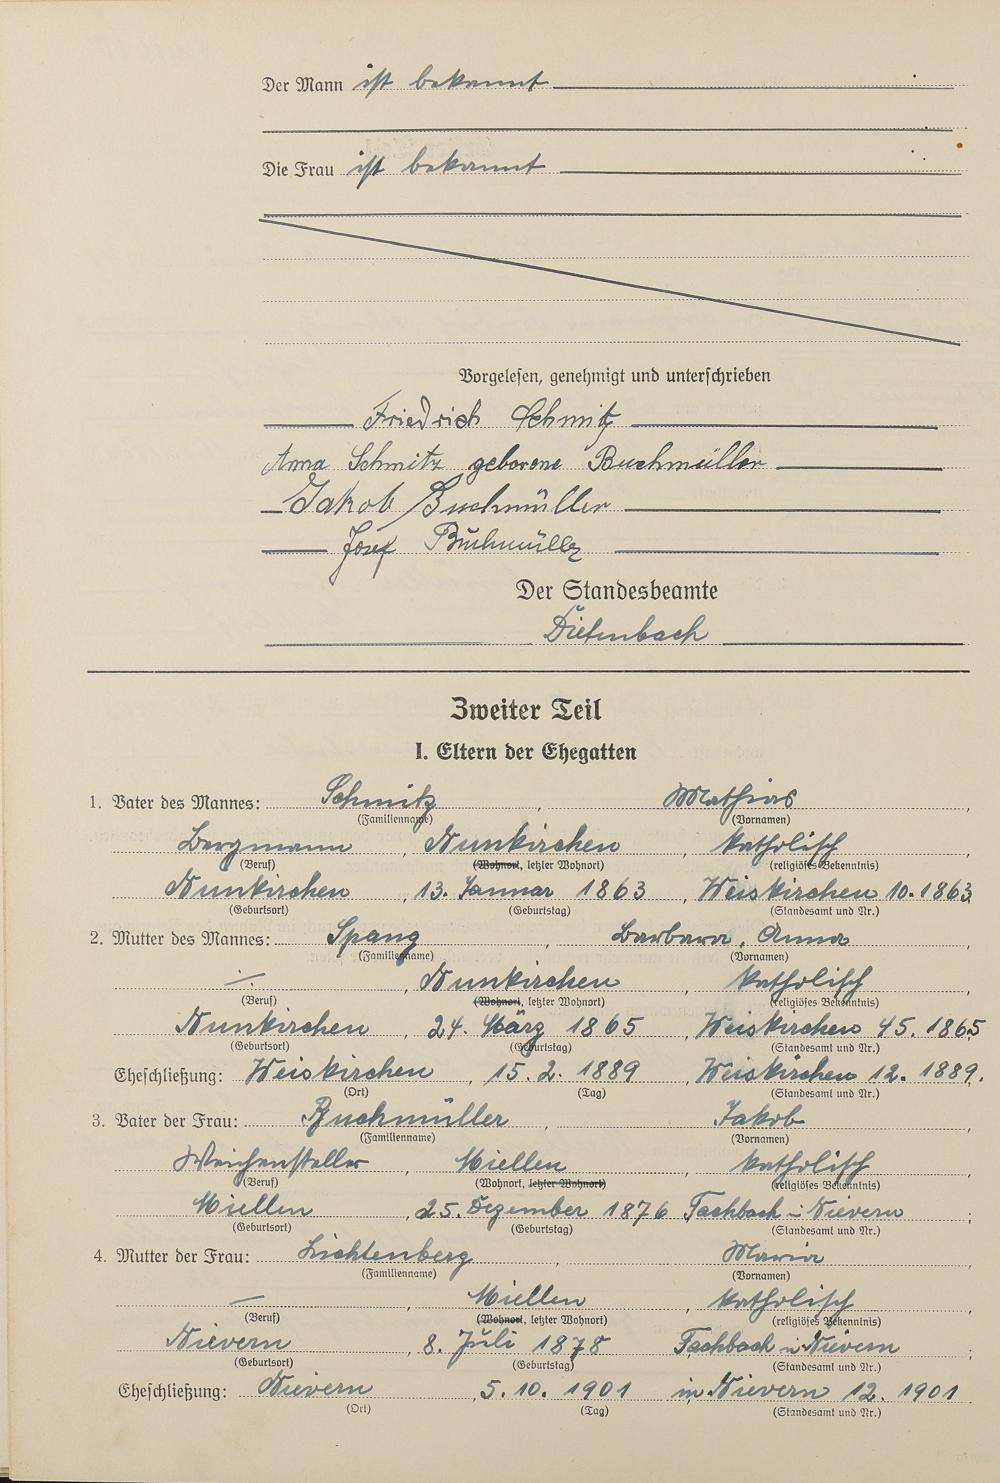 Der Mann ist bekannt
Die Frau ist bekannt
Vorgelesen, genehmigt und unterschrieben
Friedrich Schmitz
Anna Schmitz geborene Buchmüller
Jakob Buchmüller
Josef Buchmüller
Der Standesbeamte
Dietenbach
Zweiter Teil
I. Eltern der Ehegatten
1. Vater des Mannes: Schmitz, Mathias,
(Familienname) (Vornamen)
Bergmann, Nunkirchen, katholisch
(Beruf) (Wohnort, letzter Wohnort) (religiöses Bekenntnis)
Nunkirchen, 13. Januar 1863, Weiskirchen 10. 1863;
(Geburtsort) (Geburtstag) (Standesamt und Nr.)
2. Mutter des Mannes: Spang, Barbara, Anna,
(Familienname) (Vornamen)
./., Nunkirchen, katholisch
(Beruf) (Wohnort, letzter Wohnort) (religiöses Bekenntnis)
Nunkirchen, 24. März 1865, Weiskirchen 45. 1865;
(Geburtsort) (Geburtstag) (Standesamt und Nr.)
Eheschließung: Weiskirchen, 15. 2. 1889, Weiskirchen 12. 1889.
(Ort) (Tag) (Standesamt und Nr.)
3. Vater der Frau: Buchmüller, Jakob,
(Familienname) (Vornamen)
Weichensteller, Miellen, katholisch
(Beruf) (Wohnort, letzter Wohnort) (religiöses Bekenntnis)
Miellen, 25. Dezember 1876 Fachbach - Nievern;
(Geburtsort) (Geburtstag) (Standesamt und Nr.)
4. Mutter der Frau: Lichtenberg, Maria,
(Familienname) (Vornamen)
—, Miellen, katholisch
(Beruf) (Wohnort, letzter Wohnort) (religiöses Bekenntnis)
Nievern, 8. Juli 1878 Fachbach in Nievern;
(Geburtsort) (Geburtstag) (Standesamt und Nr.)
Eheschließung: Nievern, 5. 10. 1901 in Nievern 12. 1901
(Ort) (Tag) (Standesamt und Nr.)